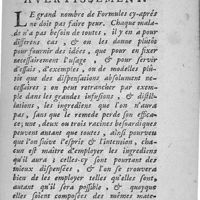 AVERTISSEMENT
LE grand nombre de Formules cy-aprés
ne doit pas faire peur. Chaque mala-
de n'a pas besoin de toutes, il y en a pour
differens cas; & on les donne plûtôt
pour fournir des idées, que pour en fixer
necessairement l'usage, & pour servir
d'essais, d'exemples, ou de modelles plû-
tôt que des dispensations absolument ne-
cessaires; on peut retrancher par exem-
ple dans les grandes infusions, & distil-
lations, les ingrediens que l'on n'aura
pas, sans que le remede perde son effica-
ce; une, deux ou trois racines besardiques
peuvent autant que toutes, ainsi pourveu
que l'on suive l'esprit & l'intention, cha-
cun est maitre d'employer les ingrediens
qu'il aura; celles-cy sont pourtant des
mieux dispensées, & l'on se trouvera
bien de les employer telles qu'elles sont,
autant qu'il sera possible, & quoyque
elles soient composées des mêmes mate-